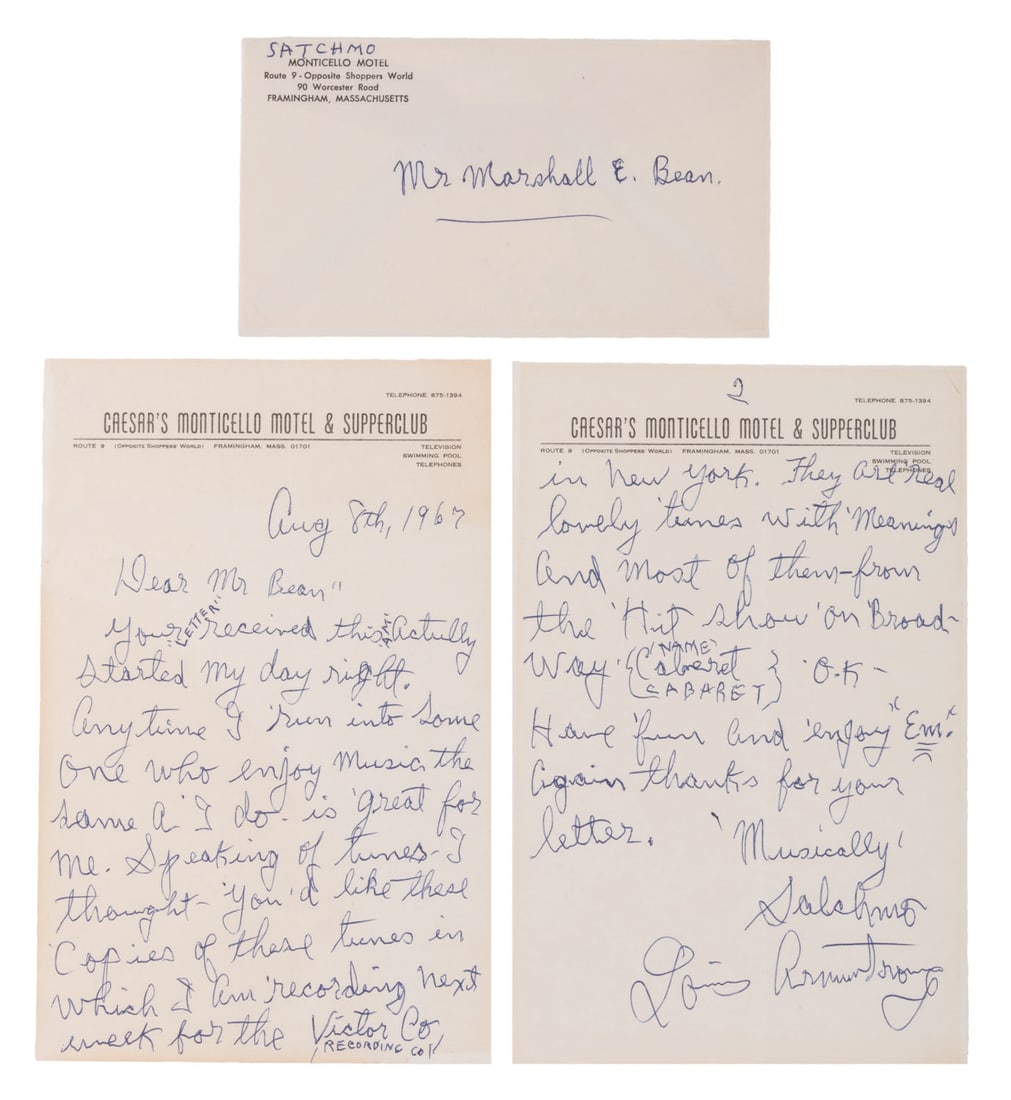 SATCHMO
MONTICELLO MOTEL
Route 9 - Opposite Shoppers World
90 Worcester Road
FRAMINGHAM, MASSACHUSETTS
Mr Marshall E. Bean.
TELEPHONE 875-1394
CAESAR'S MONTICELLO MOTEL & SUPPERCLUB
ROUTE 9 (OPPOSITE SHOPPERS' WORLD) FRAMINGHAM, MASS. 01701
TELEVISION
SWIMMING POOL
TELEPHONES
Aug 8th, 1967
Dear Mr Bean"
Your "LETTER" received this A.M. Actully
Started My day right.
Anytime I 'run into Some
One who enjoy Music the
same a' I do - is 'great for
me. Speaking of tunes - I
thought - 'You'd like these
'Copies of these tunes in
which I Am 'recording Next
week for the Victor Co
RECORDING CO
2
TELEPHONE 875-1394
CAESAR'S MONTICELLO MOTEL & SUPPERCLUB
ROUTE 9 (OPPOSITE SHOPPERS' WORLD) FRAMINGHAM, MASS. 01701
TELEVISION
SWIMMING POOL
TELEPHONES
in New York. They are real
lovely 'tunes with 'Meanings
And Most Of them - from
the 'Hit show' on 'Broad-
Way' { 'NAME' Cabaret } O.K -
(CABARET)
Have 'fun And 'enjoy "Em."
Again thanks for your
letter.
'Musically'
Satchmo
Louis Armstrong